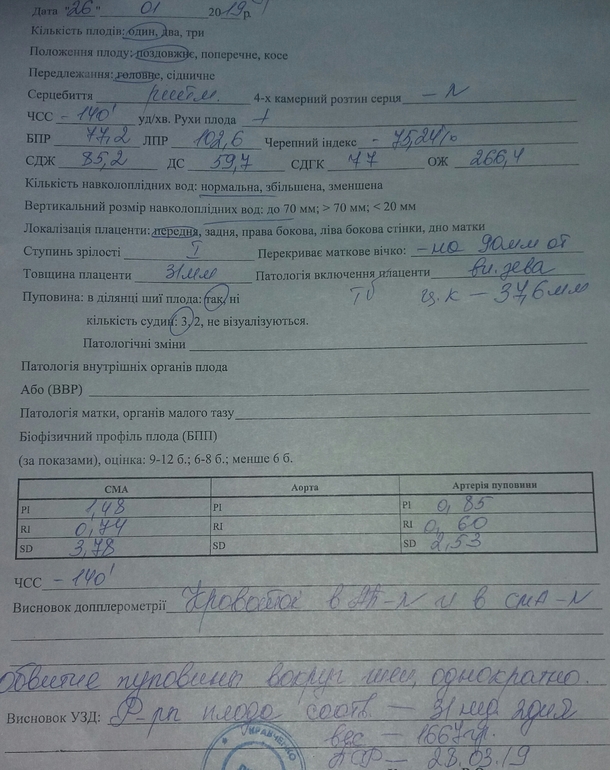 Дата "26" 01 2019р.
Кількість плодів: один, два, три
Положення плоду: поздовжнє, поперечне, косе
Передлежання: головне, сідничне
Серцебиття ритм. 4-х камерний розтин серця - N
ЧСС - 140' уд/хв. Рухи плода +
БПР 77,2 ЛПР 102,6 Черепний індекс - 75,24%
СДЖ 85,2 ДС 59,7 СДГК 77 ОЖ 266,4
Кількість навколоплідних вод: нормальна, збільшена, зменшена
Вертикальний розмір навколоплідних вод: до 70 мм; > 70 мм; < 20 мм
Локалізація плаценти: передня, задня, права бокова, ліва бокова стінки, дно матки
Ступинь зрілості I Перекриває маткове вічко: - на 90мм от
Товщина плаценти 31мм Патологія включення плаценти вн. зева
Пуповина: в ділянці шиї плода: так, ні ц.к - 37,6мм
кількість судин: 3, 2, не візуалізуються.
Патологічні зміни
Патологія внутрішніх органів плода
Або (ВВР)
Патологія матки, органів малого тазу
Біофізичний профіль плода (БПП)
(за показами), оцінка: 9-12 б.; 6-8 б.; менше 6 б.
СМА Аорта Артерія пуповини
PI 1,48 PI PI 0,85
RI 0,74 RI RI 0,60
SD 3,78 SD SD 2,53
ЧСС - 140'
Висновок допплерометрії Кровоток в АП-N и в СМА-N
Обвитие пуповины вокруг шеи, однократно.
Висновок УЗД: Р-ры плода соотв. - 31 нед 2дня
вес - 1667гр.
ПДР - 28.03.19
КРАВЧЕНКО